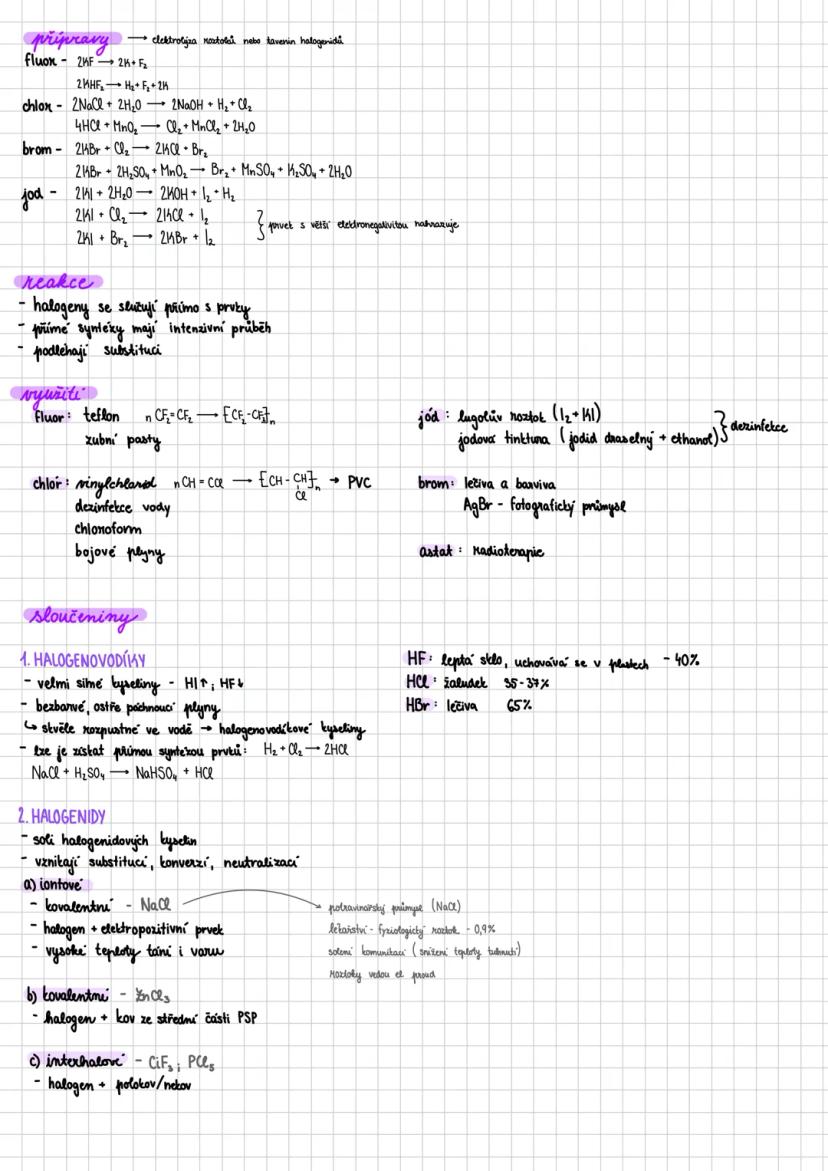 přípravy → elektrolýza roztoků nebo tavenin halogenidů
fluor - 2KF → 2K + F₂
2KHF₂ → H₂ + F₂ + 2K
chlor - 2NaCl + 2H₂O → 2NaOH + H₂ + Cl₂
4HCl + MnO₂ → Cl₂ + MnCl₂ + 2H₂O
brom - 2KBr + Cl₂ → 2KCl + Br₂
2KBr + 2H₂SO₄ + MnO₂ → Br₂ + MnSO₄ + K₂SO₄ + 2H₂O
jod - 2KI + 2H₂O → 2KOH + I₂ + H₂
2KI + Cl₂ → 2KCl + I₂
2KI + Br₂ → 2KBr + I₂
} prvek s větší elektronegativitou nahrazuje
reakce
- halogeny se slučují přímo s prvky
- přímé syntézy mají intenzivní průběh
- podléhají substituci
využití
fluor: teflon n CF₂=CF₂ → [CF₂-CF₂]ₙ
zubní pasty
chlór: vinylchlorid n CH = CCl → [CH - CH]ₙ → PVC
Cl
dezinfekce vody
chloroform
bojové plyny
jód: lugolův roztok (I₂ + KI)
jodová tinktura (jodid draselný + ethanol) } dezinfekce
brom: léčiva a barviva
AgBr - fotografický průmysl
astat: radioterapie
sloučeniny
1. HALOGENOVODÍKY
- velmi silné kyseliny - HI↑; HF↓
- bezbarvé, ostře páchnoucí plyny
↳ skvěle rozpustné ve vodě → halogenovodíkové kyseliny
- lze je získat přímou syntézou prvků: H₂ + Cl₂ → 2HCl
NaCl + H₂SO₄ → NaHSO₄ + HCl
HF: leptá sklo, uchovává se v plastech - 40%
HCl: žaludek 35-37%
HBr: léčiva 65%
2. HALOGENIDY
- soli halogenidových kyselin
- vznikají substitucí, konverzí, neutralizací
a) iontové
- kovalentní - NaCl
- halogen + elektropozitivní prvek
- vysoké teploty tání i varu
potravinářský průmysl (NaCl)
lékařství - fyziologický roztok - 0,9%
solení komunikací (snížení teploty tuhnutí)
roztoky vedou el. proud
b) kovalentní - ZnCl₃
- halogen + kov ze střední části PSP
c) interhalové - ClF₃; PCl₅
- halogen + polokov/nekov